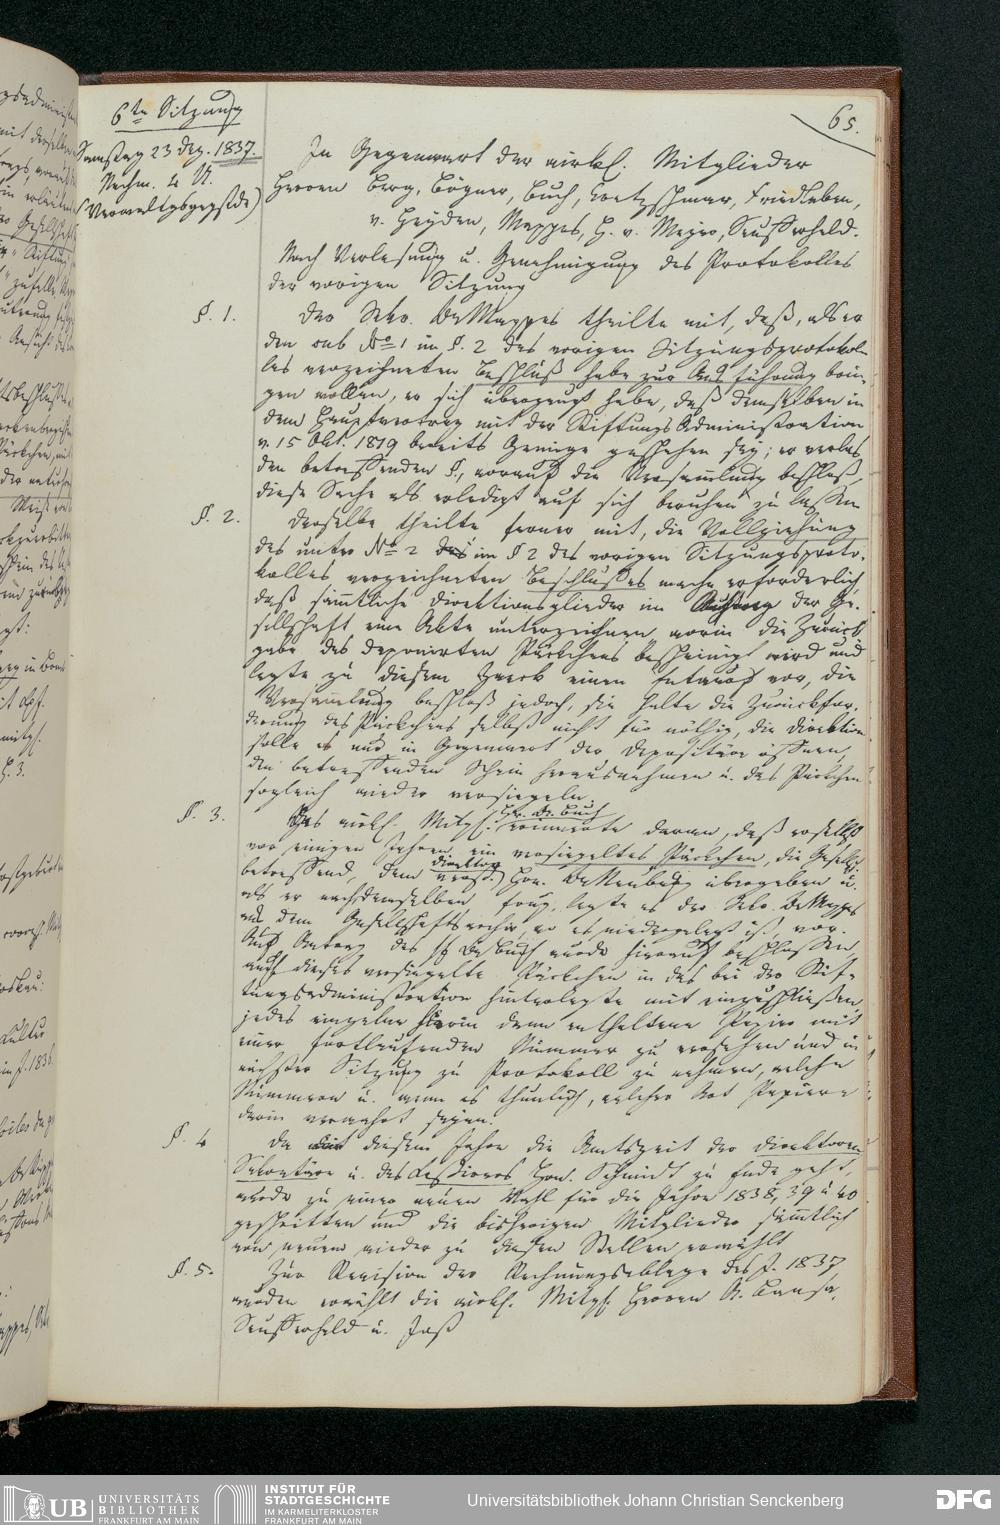 65.
6te Sitzung
Samstag 23 Dez. 1837.
Nachm. 4 U.
(Verwaltgsgegstde)
In Gegenwart der wirkl. Mitglieder
Herren Berg, Bögner, Buch, Kretzschmar, Friedleben,
v. Heyden, Mappes, H. v. Meyer, Neuffer held.
Nach Verlesung u. Genehmigung des Protokolles
der vorigen Sitzung
§. 1.
Der Sekr. Dr Mappes theilte mit, daß, als er
den sub No 1 im §. 2 des vorigen Sitzungsprotokol-
les verzeichneten Beschluß habe zur Ausführung brin-
gen wollen, er sich überzeugt habe, daß demselben in
dem Hauptvertrag mit der Stiftungs Administration
v. 15 Okt. 1819 bereits Genüge geschehen sey; er verlas
den betreffenden §., worauf die Versammlung beschloß,
diese Sache als erledigt auf sich beruhen zu lassen
§. 2.
Derselbe theilte ferner mit, die Vollziehung
des unter No 2 im § 2 des vorigen Sitzungsproto-
kolles verzeichneten Beschlußes mache erforderlich,
daß sämtliche Direktionsglieder im Auftrag der Ge-
sellschaft eine Akte unterzeichnen, worin die Zurück
gabe des deponirten Päckchens bescheinigt wird und
legte zu diesem Zweck einen Entwurf vor, die
Versammlung beschloß jedoch, sie halte die Zurückfor-
derung des Päckchens selbst nicht für nöthig, die Direktion
solle es nur in Gegenwart der Depositäre öffnen,
den betreffenden Schein herausnehmen u. das Päckchen
sogleich wieder versiegeln.
§. 3.
Das wirkl. Mitgl. Hr. Dr. Buch erinnerte daran, daß er selbst
vor einigen Jahren ein versiegeltes Päckchen, die Gesellsch.
betreffend, dem verst. Direktor Hrn. Dr Neuburg übergeben u.
als er nach demselben frug, legte es der Sekr. Dr Mappes
aus dem Gesellschaftsarchiv, wo es niedergelegt ist, vor.
Auf Antrag des Hr Dr Buch wurde hierauf beschlossen
auch dieses versiegelte Päckchen in das bei der Stif-
tungsadministration hinterlegte mit einzuschließen,
jedes einzelne hierin dann enthaltene Papier mit
einer fortlaufenden Nummer zu versehen und in
nächster Sitzung zu Protokoll zu nehmen, welche
Nummern u. wenn es thunlich, welcher Art Papiere
darin verwahrt seyen.
§. 4
Da mit diesem Jahre die Amtszeit der Direktoren
Sekretäre u. des Kassierers Hrn. Schmidt zu Ende geht,
wurde zu einer neuen Wahl für die Jahre 1838, 39 u 40
geschritten und die bisherigen Mitglieder sämmtlich
von neuem wieder zu diesen Stellen erwählt
§. 5.
Zur Revision der Rechnungsablage des J. 1837
wurden erwählt die wirkl. Mitgl. Herren R. Bansa,
Neuffer held u. Jaß
UB UNIVERSITÄTS
BIBLIOTHEK
FRANKFURT AM MAIN
INSTITUT FÜR
STADTGESCHICHTE
IM KARMELITERKLOSTER
FRANKFURT AM MAIN
Universitätsbibliothek Johann Christian Senckenberg
DFG